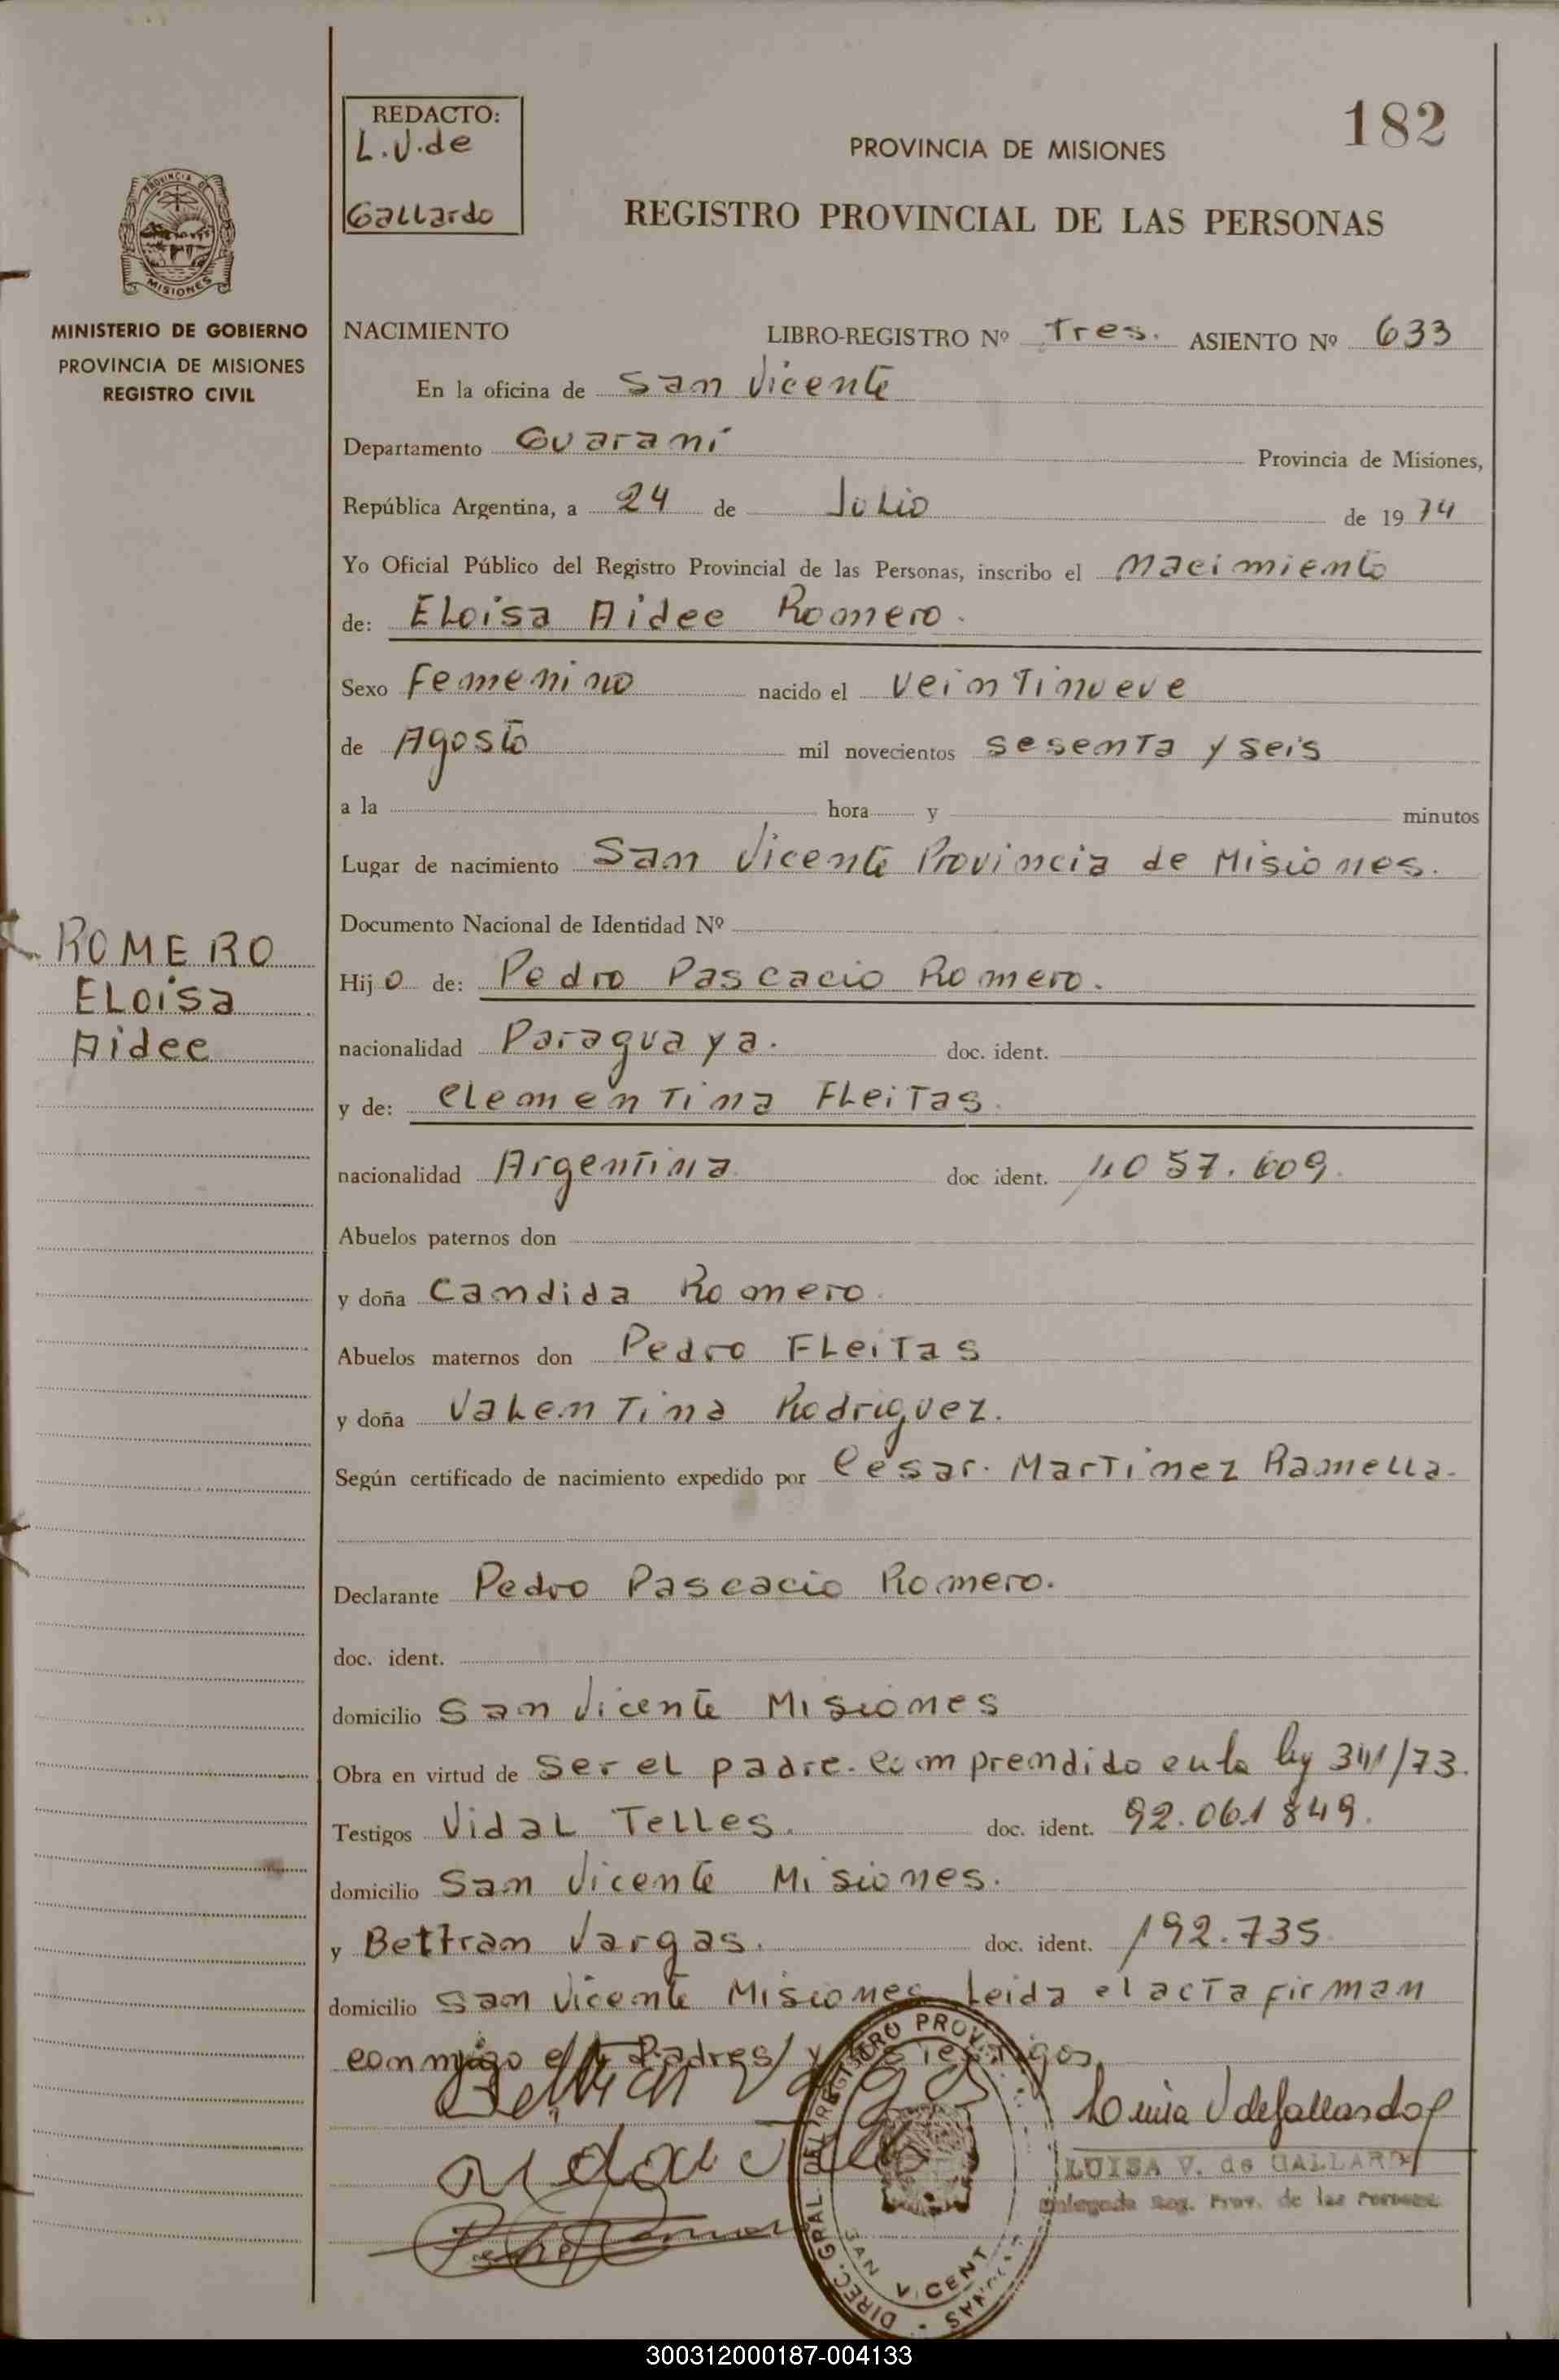 REDACTO:
L.V. de
Gallardo
182
PROVINCIA DE MISIONES
REGISTRO PROVINCIAL DE LAS PERSONAS
PROVINCIA DE
MISIONES
MINISTERIO DE GOBIERNO
PROVINCIA DE MISIONES
REGISTRO CIVIL
NACIMIENTO LIBRO-REGISTRO Nº Tres. ASIENTO Nº 633
En la oficina de San Vicente
Departamento Guaraní Provincia de Misiones,
República Argentina, a 24 de Julio de 1974
Yo Oficial Público del Registro Provincial de las Personas, inscribo el Nacimiento
de: Eloisa Aidee Romero.
Sexo Femenino nacido el veintinueve
de Agosto mil novecientos sesenta y seis
a la hora y minutos
Lugar de nacimiento San Vicente Provincia de Misiones.
Documento Nacional de Identidad Nº
ROMERO
Eloisa
Aidee
Hijo de: Pedro Pascacio Romero.
nacionalidad Paraguaya. doc. ident.
y de: Clementina Fleitas.
nacionalidad Argentina doc ident. 057.609
Abuelos paternos don
y doña Candida Romero.
Abuelos maternos don Pedro Fleitas
y doña Valentina Rodriguez.
Según certificado de nacimiento expedido por Cesar. Martinez Ramella.
Declarante Pedro Pascacio Romero.
doc. ident.
domicilio San Vicente Misiones
Obra en virtud de ser el padre. comprendido en la ley /73.
Testigos Vidal Telles. doc. ident. 92.061849.
domicilio San Vicente Misiones.
y Beltran Vargas. doc. ident. 192.735
domicilio San Vicente Misiones Leida el acta firman
conmigo Padres y testigos
LUISA V. de GALLARDO
Delegada Reg. Prov. de las Personas
DIREC. GRAL. DEL REGISTRO PROV.
SAN VICENTE
300312000187-004133